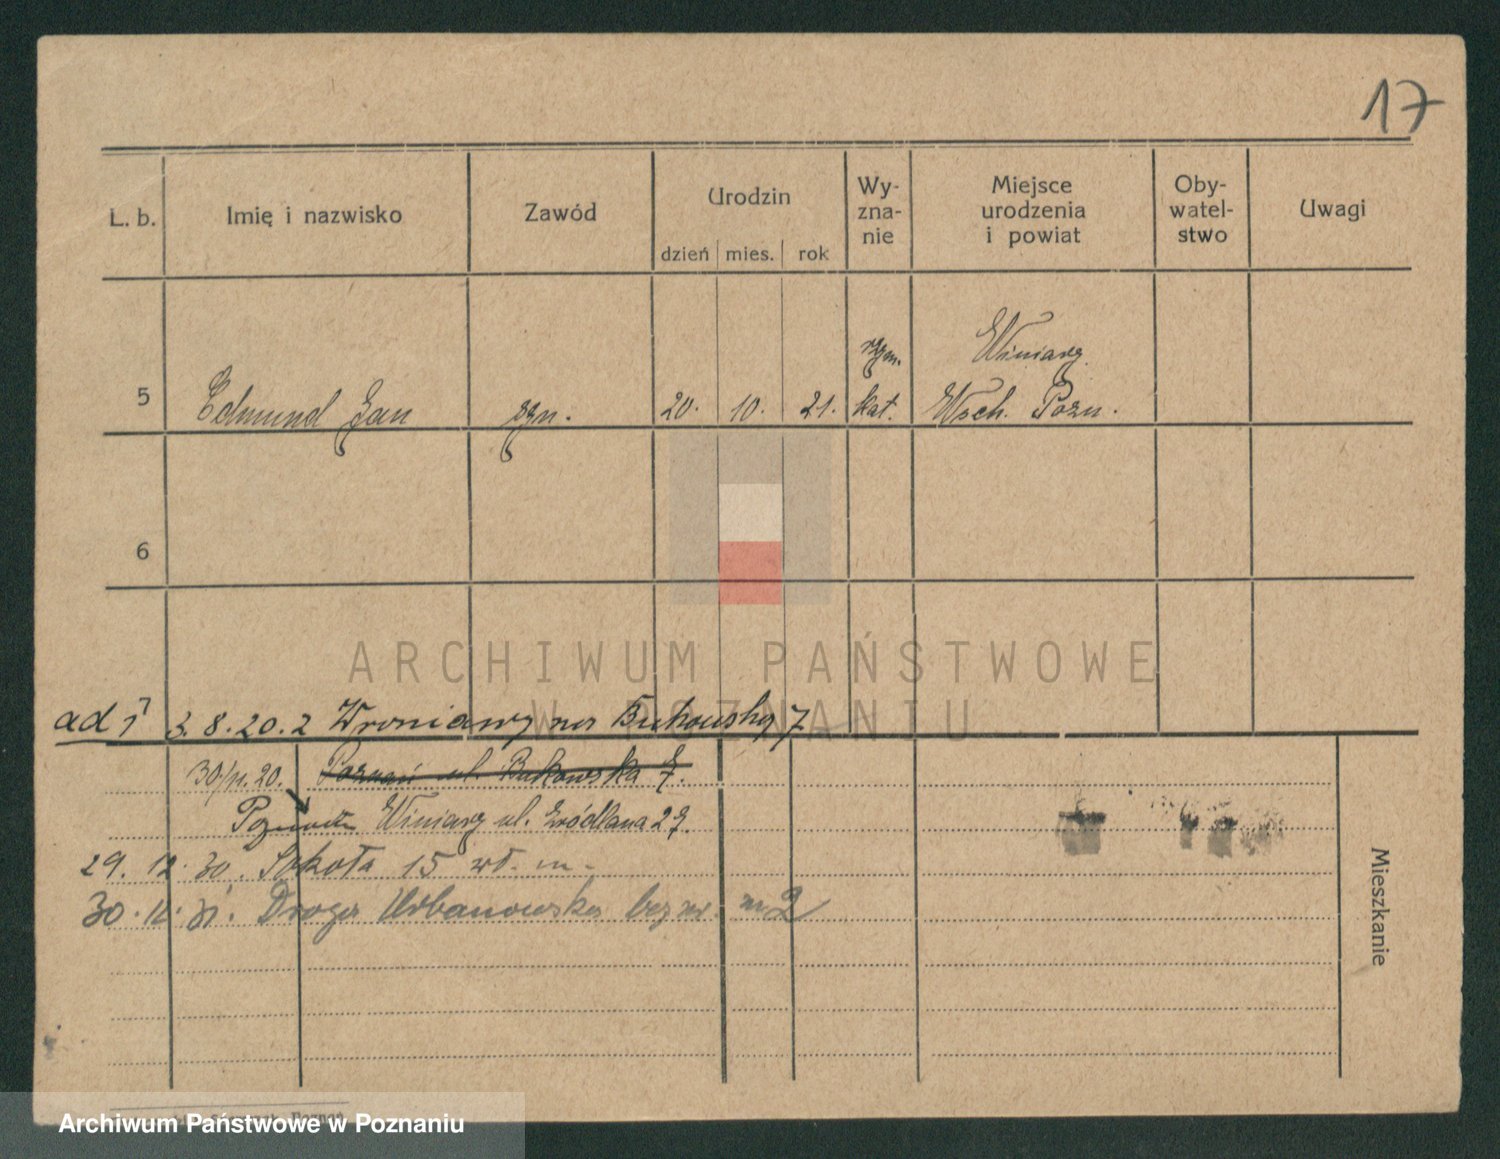 17
L. b. Imię i nazwisko Zawód Urodzin dzień mies. rok Wy-zna-nie Miejsce urodzenia i powiat Oby-watel-stwo Uwagi
Winiary
rzym.
5 Edmund Jan syn. 20. 10. 21. kat. Wsch. Pozn.
6
ARCHIWUM PAŃSTWOWE
W POZNANIU
ad 1 3.8.20. z Bukowska 7
20. Poznań ul. Bukowska 7.
Winiary ul. Źródlana 27.
29. 12. 30. Sokoła 15 wł. m.
30. 12. 31. Droga Urbanowska bez nr. m 2
Mieszkanie
Poznań
Archiwum Państwowe w Poznaniu